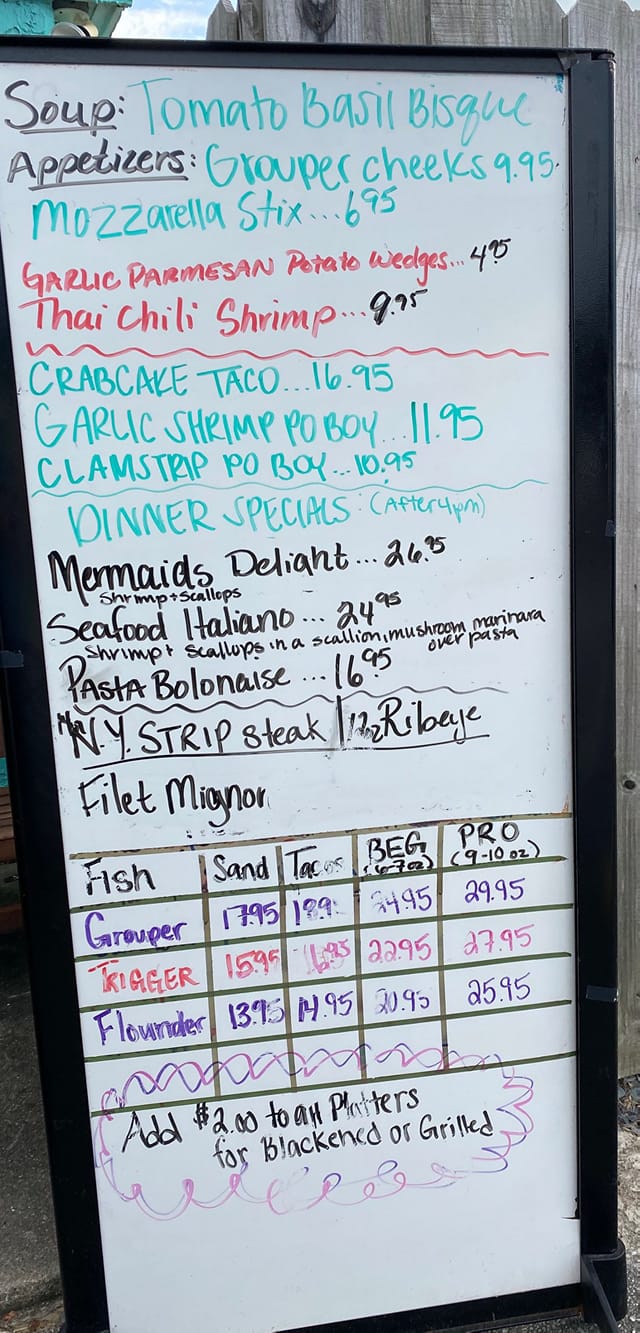 Soup: Tomato Basil Bisque
Appetizers: Grouper cheeks 9.95
Mozzarella Stix... 6.95
GARLIC PARMESAN Potato Wedges... 4.95
Thai Chili Shrimp... 9.95
CRABCAKE TACO... 16.95
GARLIC SHRIMP PO BOY... 11.95
CLAMSTRIP PO BOY... 10.95
DINNER SPECIALS: (After 4pm)
Mermaids Delight... 26.95
Shrimp + Scallops
Seafood Italiano... 24.95
Shrimp + Scallops in a scallion, mushroom marinara
over pasta
PASTA Bolonaise... 16.95
N.Y. STRIP Steak | Ribeye
Filet Mignon
Fish Sand Tacos BEG (6-7oz) PRO (9-10 oz)
Grouper 17.95 24.95 29.95
TRIGGER 15.95 16.95 22.95 27.95
Flounder 13.95 14.95 20.95 25.95
Add $2.00 to all Platters
for Blackened or Grilled